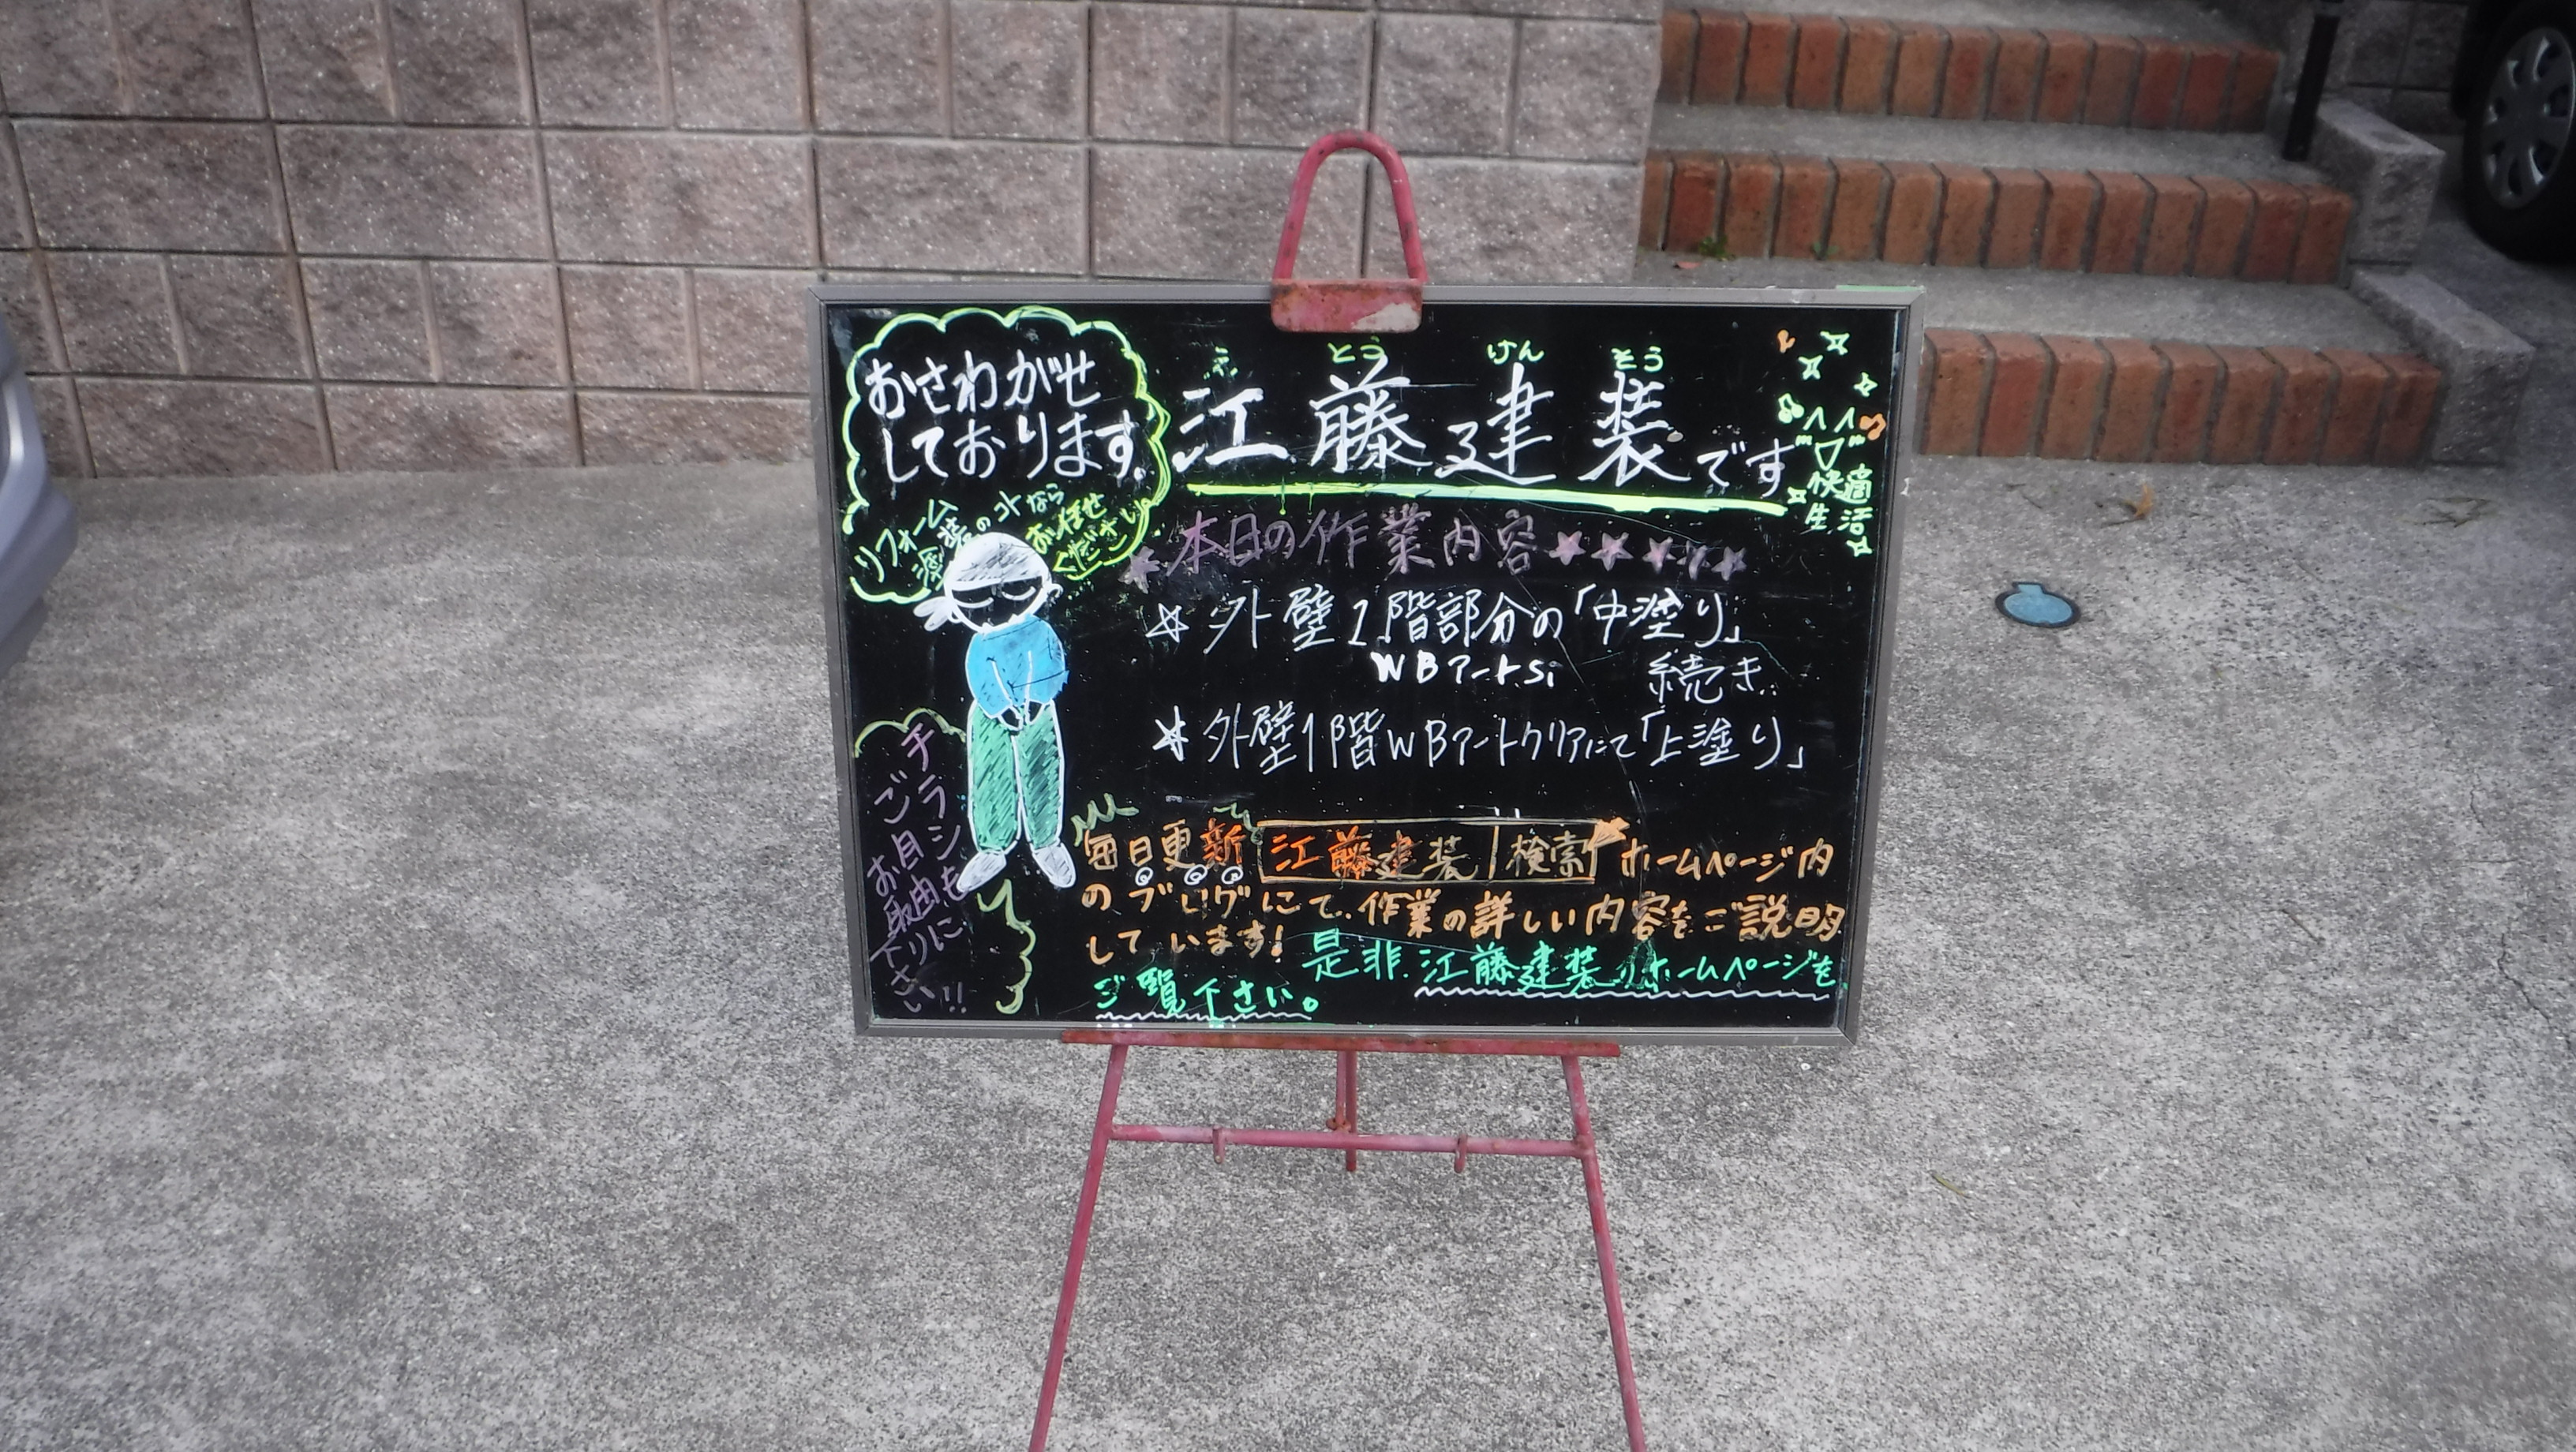 おさわがせ
しております。
リフォーム
塗装のコトなら
お任せ
ください
え とう けん そう
江藤建装です
快適
生活
本日の作業内容
外壁1階部分の「中塗り」
WBアートSi 続き
外壁1階WBアートクリアにて「上塗り」
チラシも
ご自由に
お取り
下さい!!
毎日更新 江藤建装 検索 ホームページ内
のブログにて、作業の詳しい内容をご説明
しています!
是非、江藤建装のホームページを
ご覧下さい。